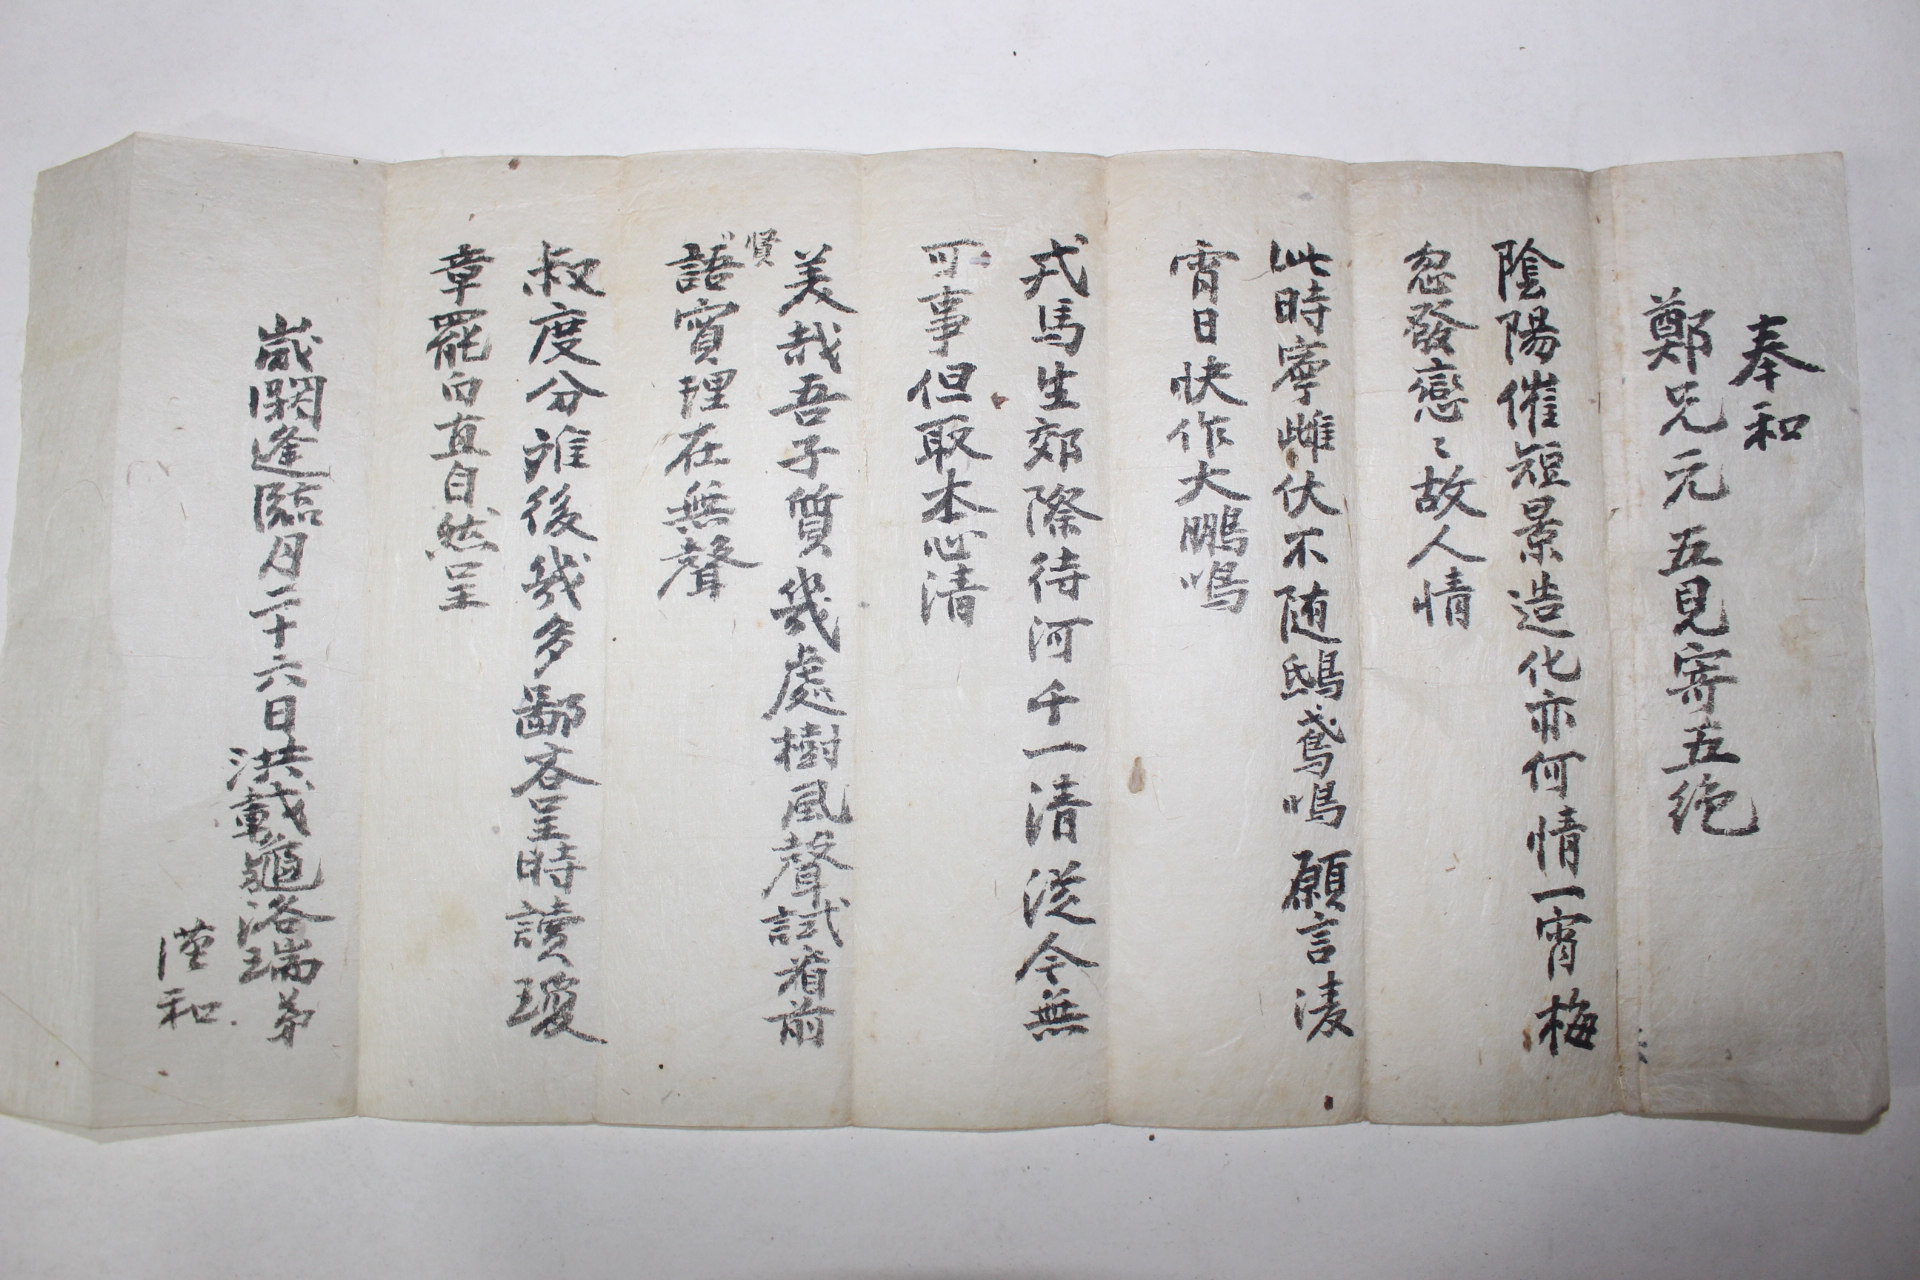 奉和
鄭兄元五見寄五絶
陰陽催短景造化亦何情一宵梅
忽發戀〻故人情
此時寧雌伏不随鴟鳶鳴願言凌
宵日快作大鵬鳴
戎馬生郊際待河千一清從今無
可事但取本心清
美哉吾子質幾處樹風聲試看前
賢
語實理在無聲
叔度分誰後幾多鄙吝呈時讀瓊
章罷向直自然呈
歲閼逢臨月二十六日洪載龜洛瑞弟
謹和